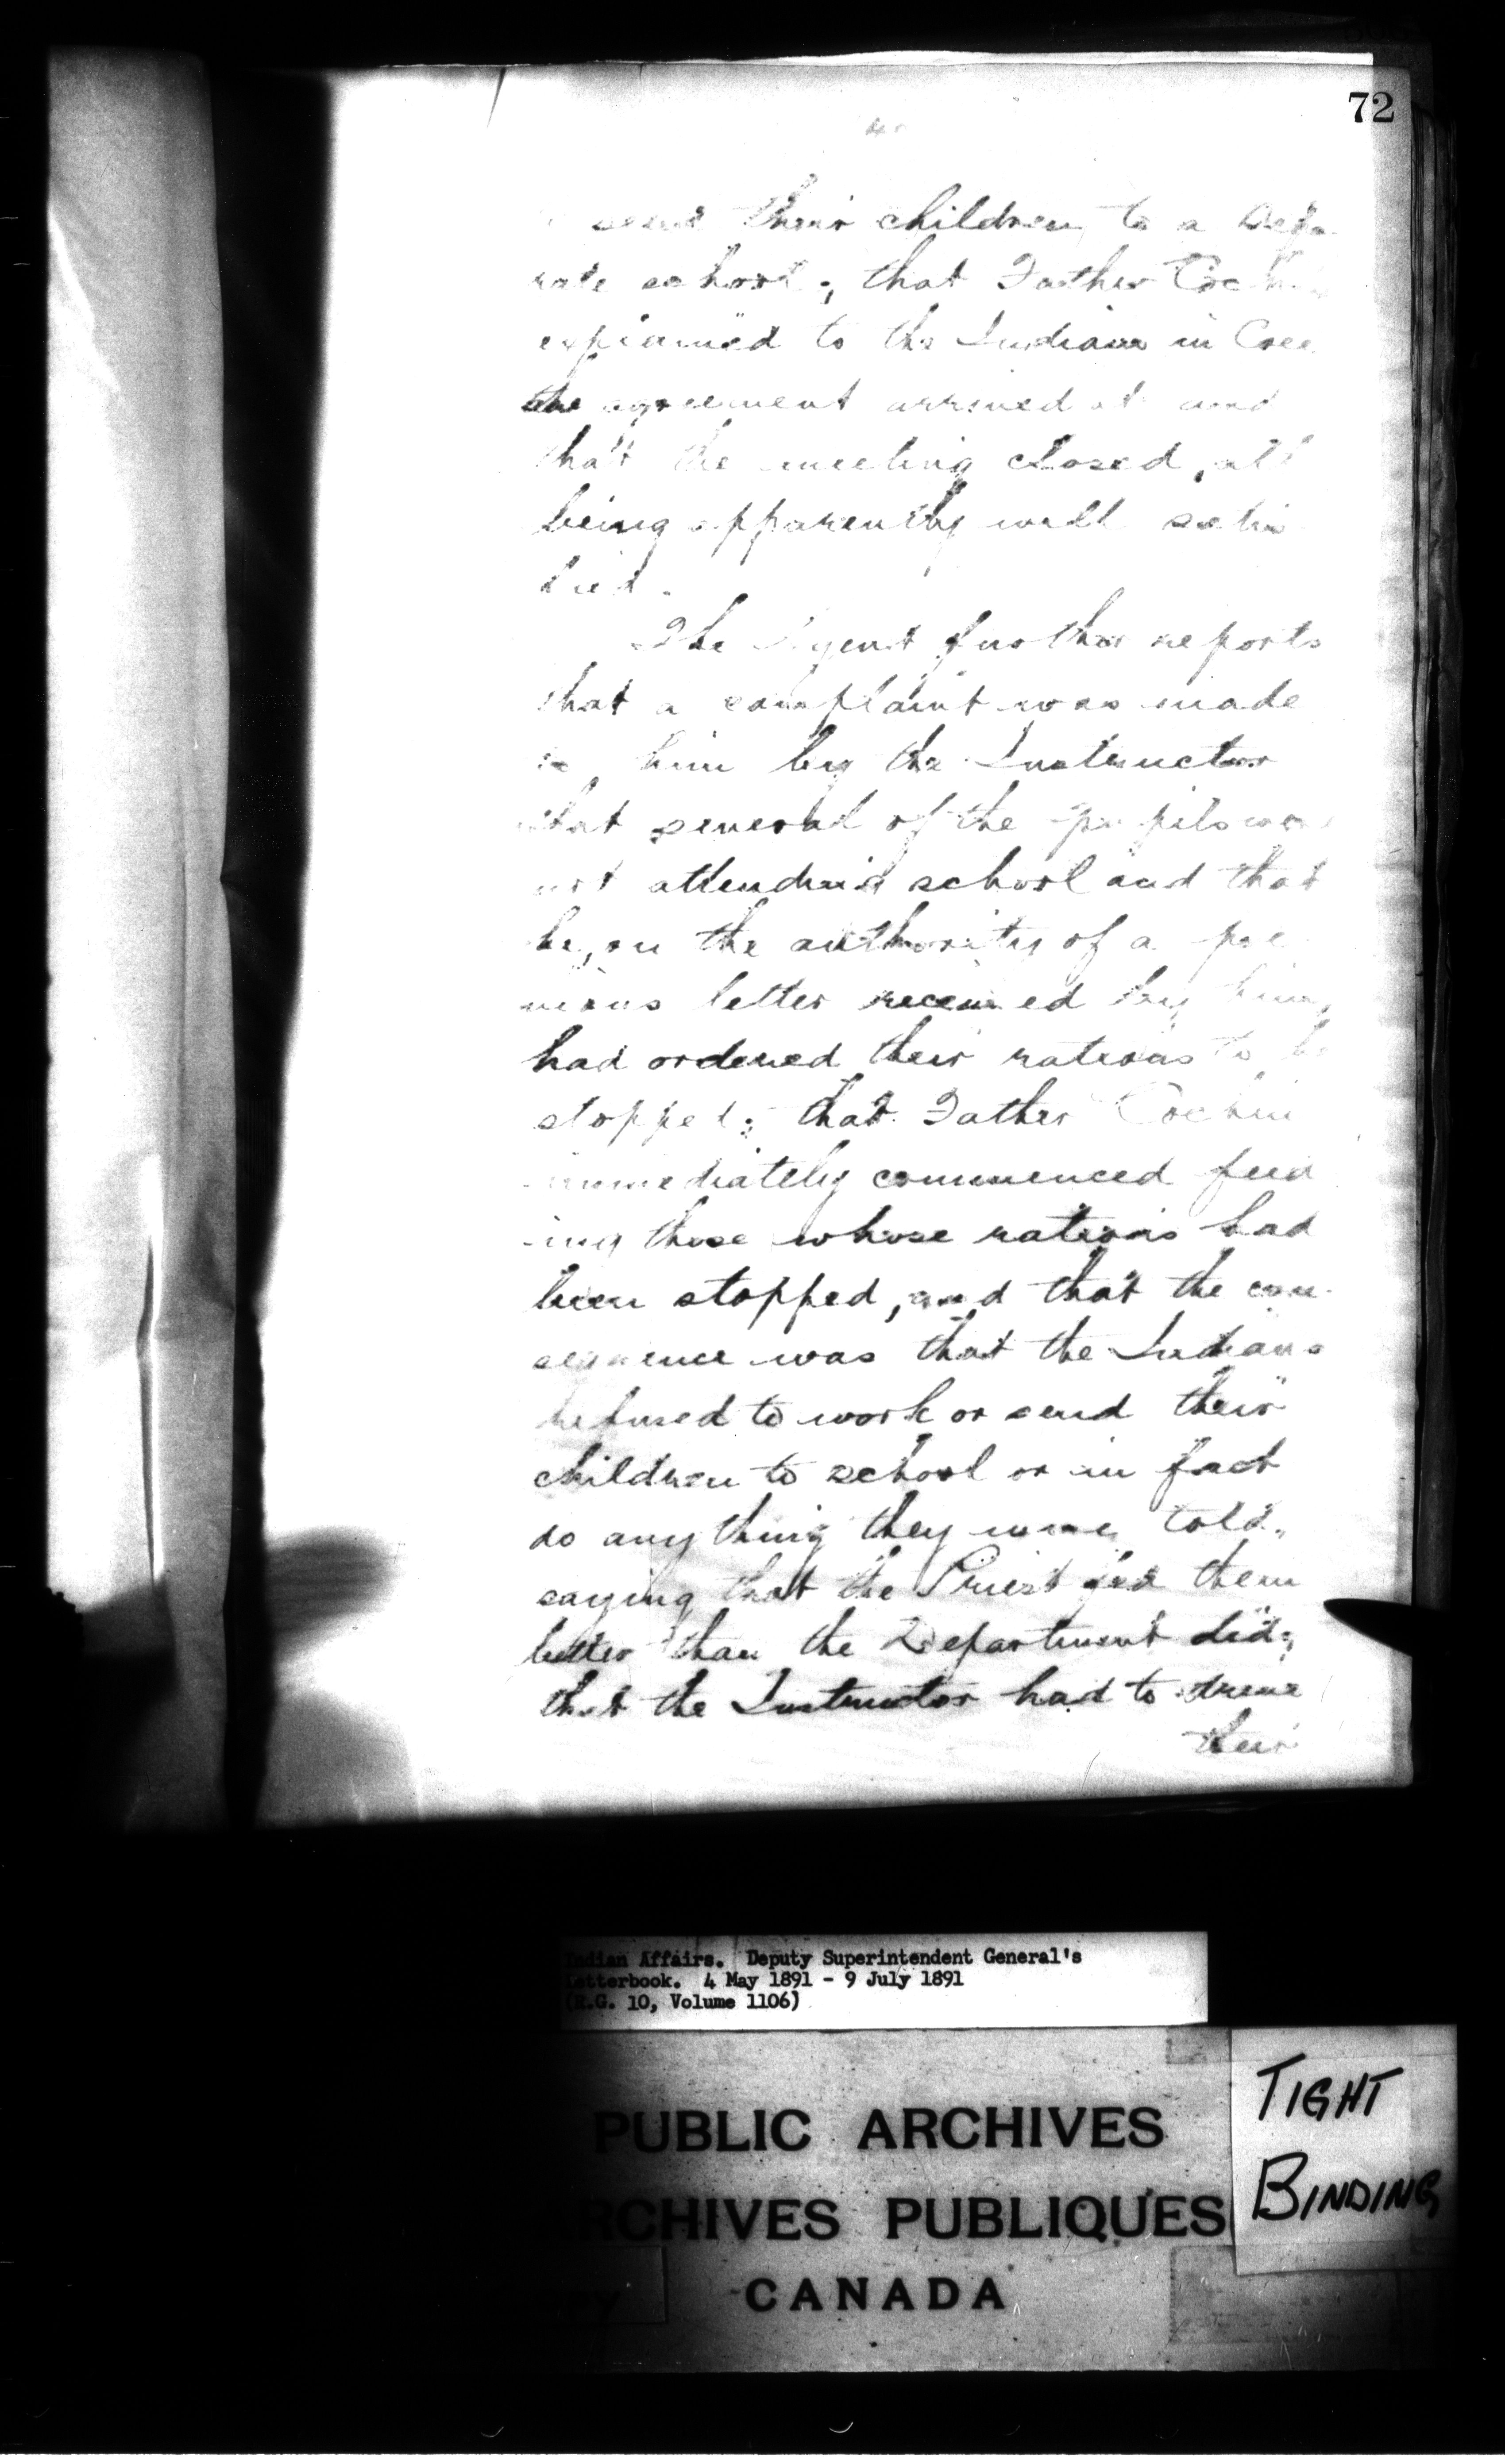 72
send their children to a Sepa
rate school; that Father Cochin
explained to the Indians in Cree
the agreement arrived at and
that the meeting closed, all
being apparently well satis
fied.
The Agent further reports
that a complaint was made
to him by the Instructor
that several of the pupils were
not attending school and that
he, on the authority of a pre
vious letter received by him,
had ordered their rations to be
stopped; that Father Cochin
immediately commenced feed
-ing those whose rations had
been stopped, and that the con-
sequence was that the Indians
refused to work or send their
children to school or in fact
do anything they were told,
saying that the Priest fed them
better than the Department did;
that the Instructor had to drive
their
Indian Affairs. Deputy Superintendent General's
Letterbook. 4 May 1891 - 9 July 1891
(R.G. 10, Volume 1106)
PUBLIC ARCHIVES
ARCHIVES PUBLIQUES
CANADA
TIGHT
BINDING